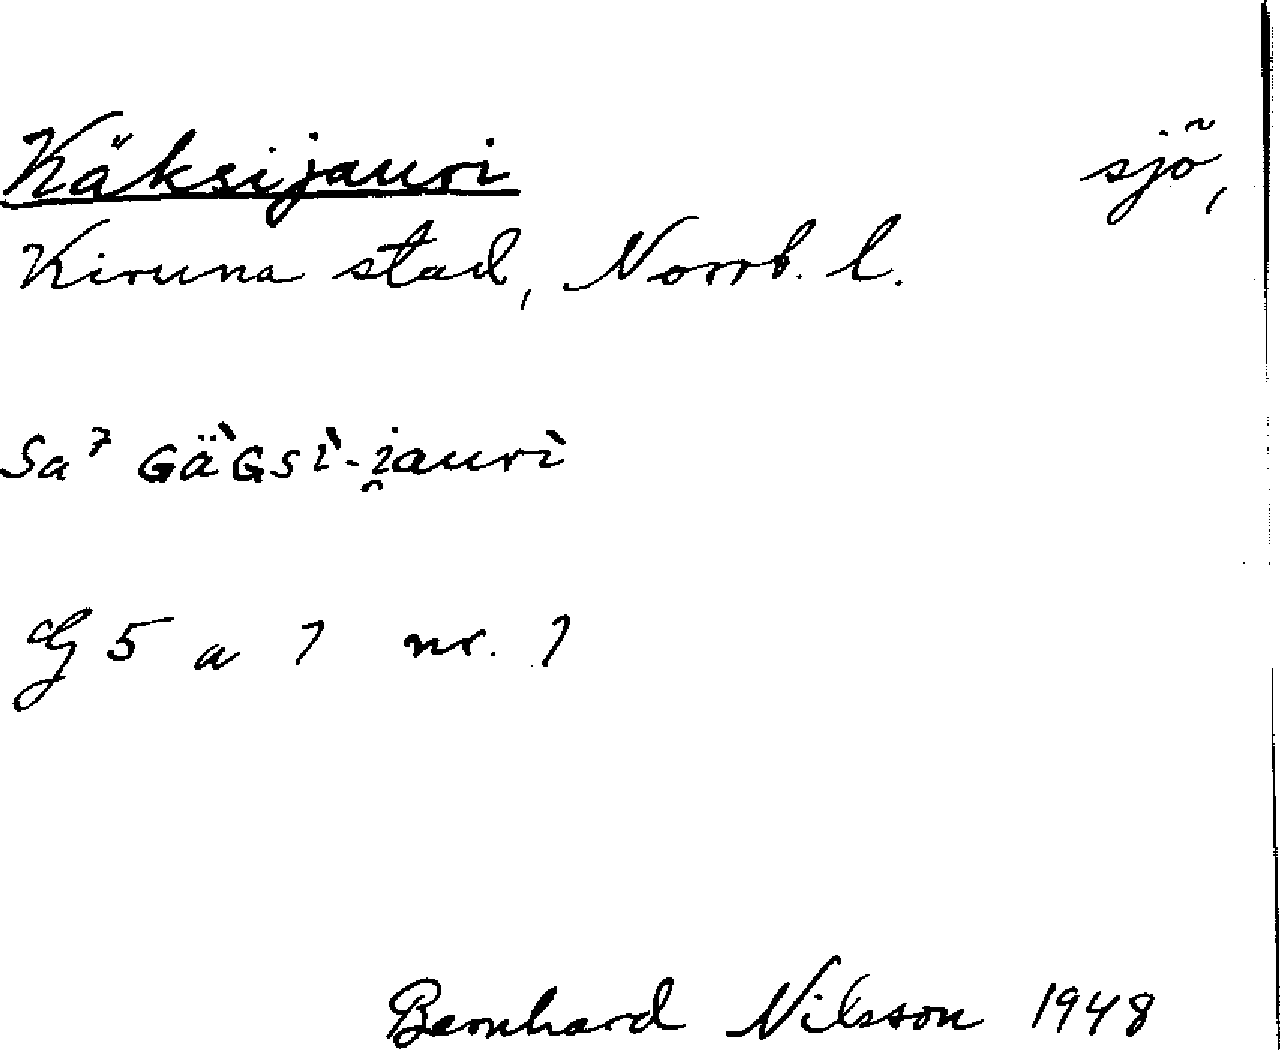 Käksijauri sjö,
Kiruna stad, Norrb. l.
Sa⁷ Gä̀Gsì-i̯aurì
G 5 a 7 nr. 7
Bernhard Nilsson 1948